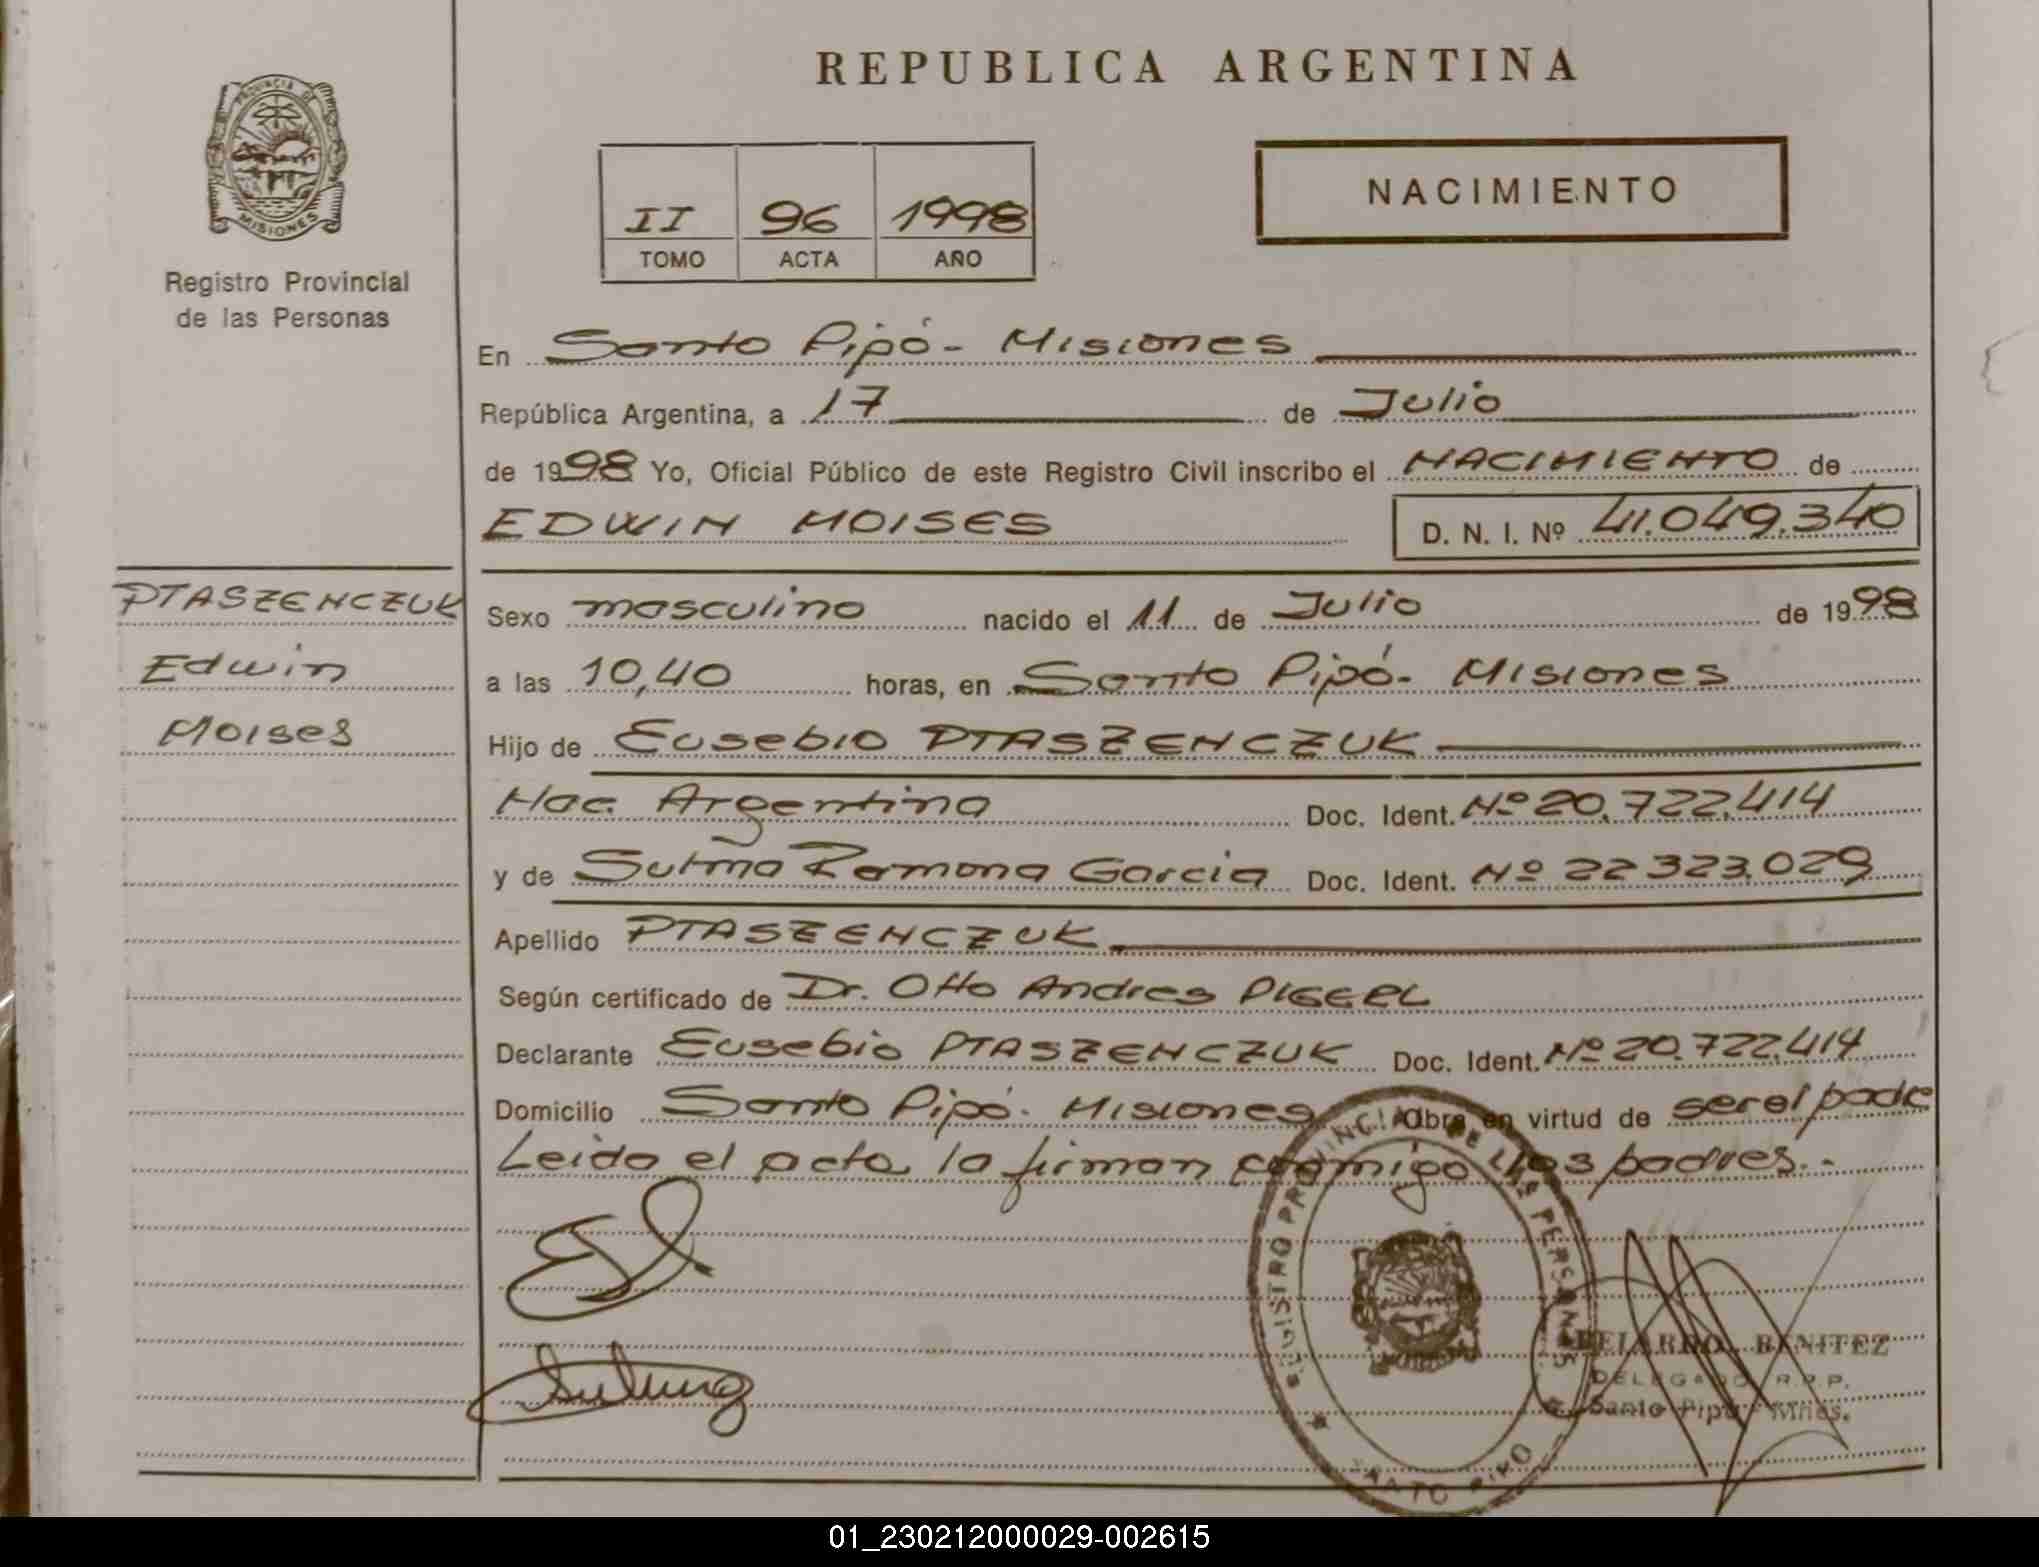 REPUBLICA ARGENTINA
PROVINCIA DE
MISIONES
Registro Provincial
de las Personas
II 96 1998
TOMO ACTA AÑO
NACIMIENTO
En Santo Pipó - Misiones
República Argentina, a 17 de Julio
de 1998 Yo, Oficial Público de este Registro Civil inscribo el NACIMIENTO de
EDWIN MOISES D. N. I. Nº 41.049.340
PTASZENCZUK
Edwin
Moises
Sexo masculino nacido el 11 de Julio de 1998
a las 10,40 horas, en Santo Pipó - Misiones
Hijo de Eusebio PTASZENCZUK
Nac. Argentina Doc. Ident. Nº 20.722.414
y de Sulma Ramona Garcia Doc. Ident. Nº 22 323.029
Apellido PTASZENCZUK
Según certificado de Dr. Otto Andres
Declarante Eusebio PTASZENCZUK Doc. Ident. Nº 20.722.414
Domicilio Santo Pipó - Misiones Obra en virtud de ser el padre
Leido el acta la firman conmigo los padres.-
REGISTRO PROVINCIAL DE LAS PERSONAS
SANTO PIPO
BENITEZ
DELEGADO R.P.P.
Santo Pipó - Mnes.
01_230212000029-002615